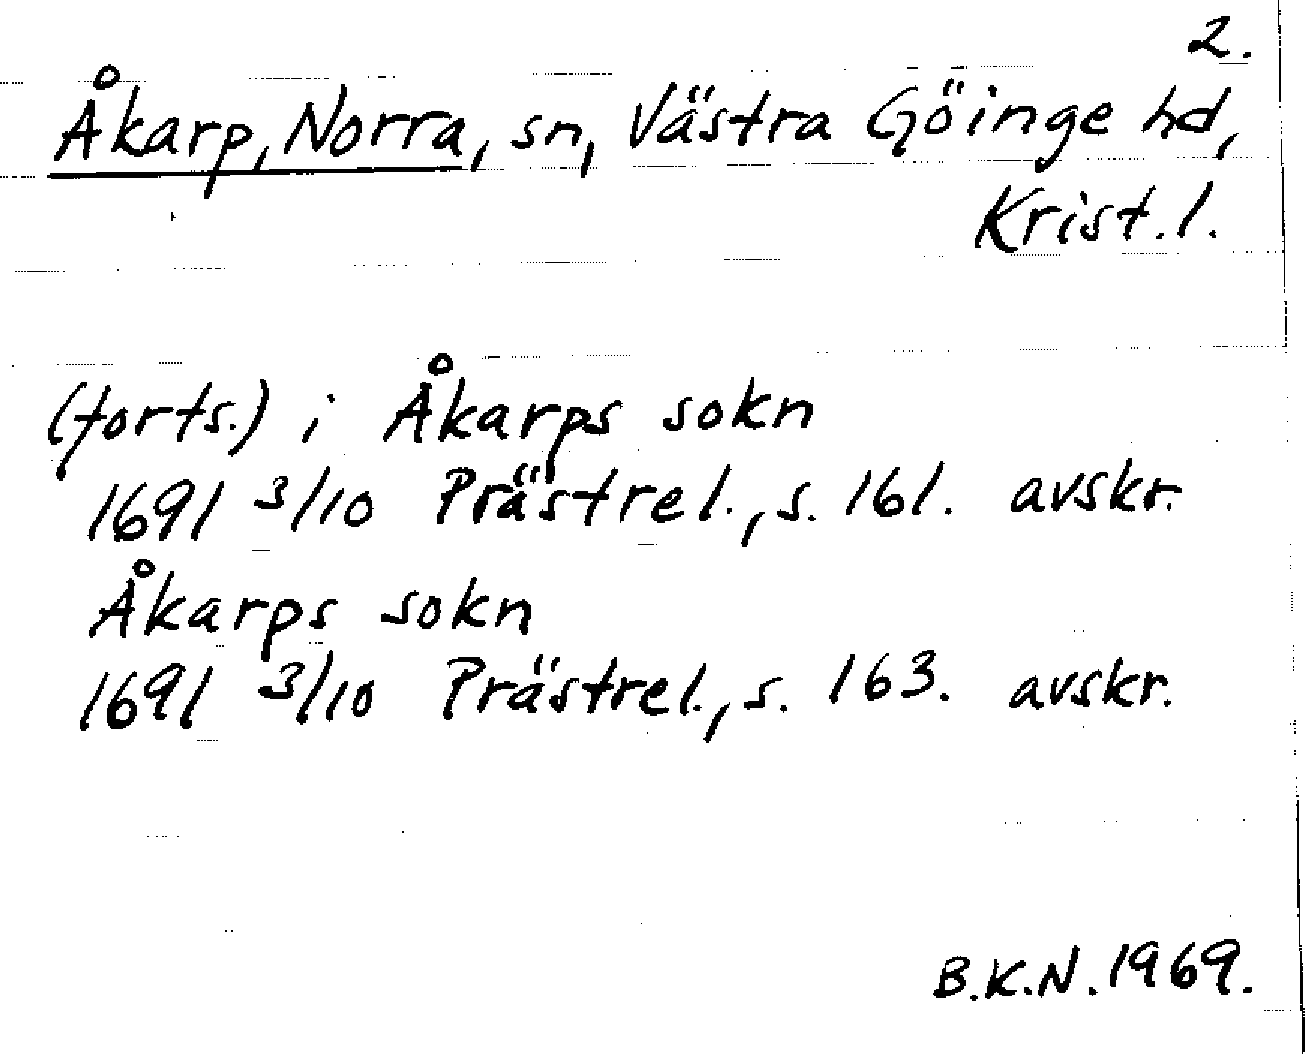 2.
Åkarp, Norra, sn, Västra Göinge hd,
Krist. l.
(forts.) i Åkarps sokn
1691 3/10 Prästrel., s. 161. avskr.
Åkarps sokn
1691 3/10 Prästrel., s. 163. avskr.
B.K.N. 1969.